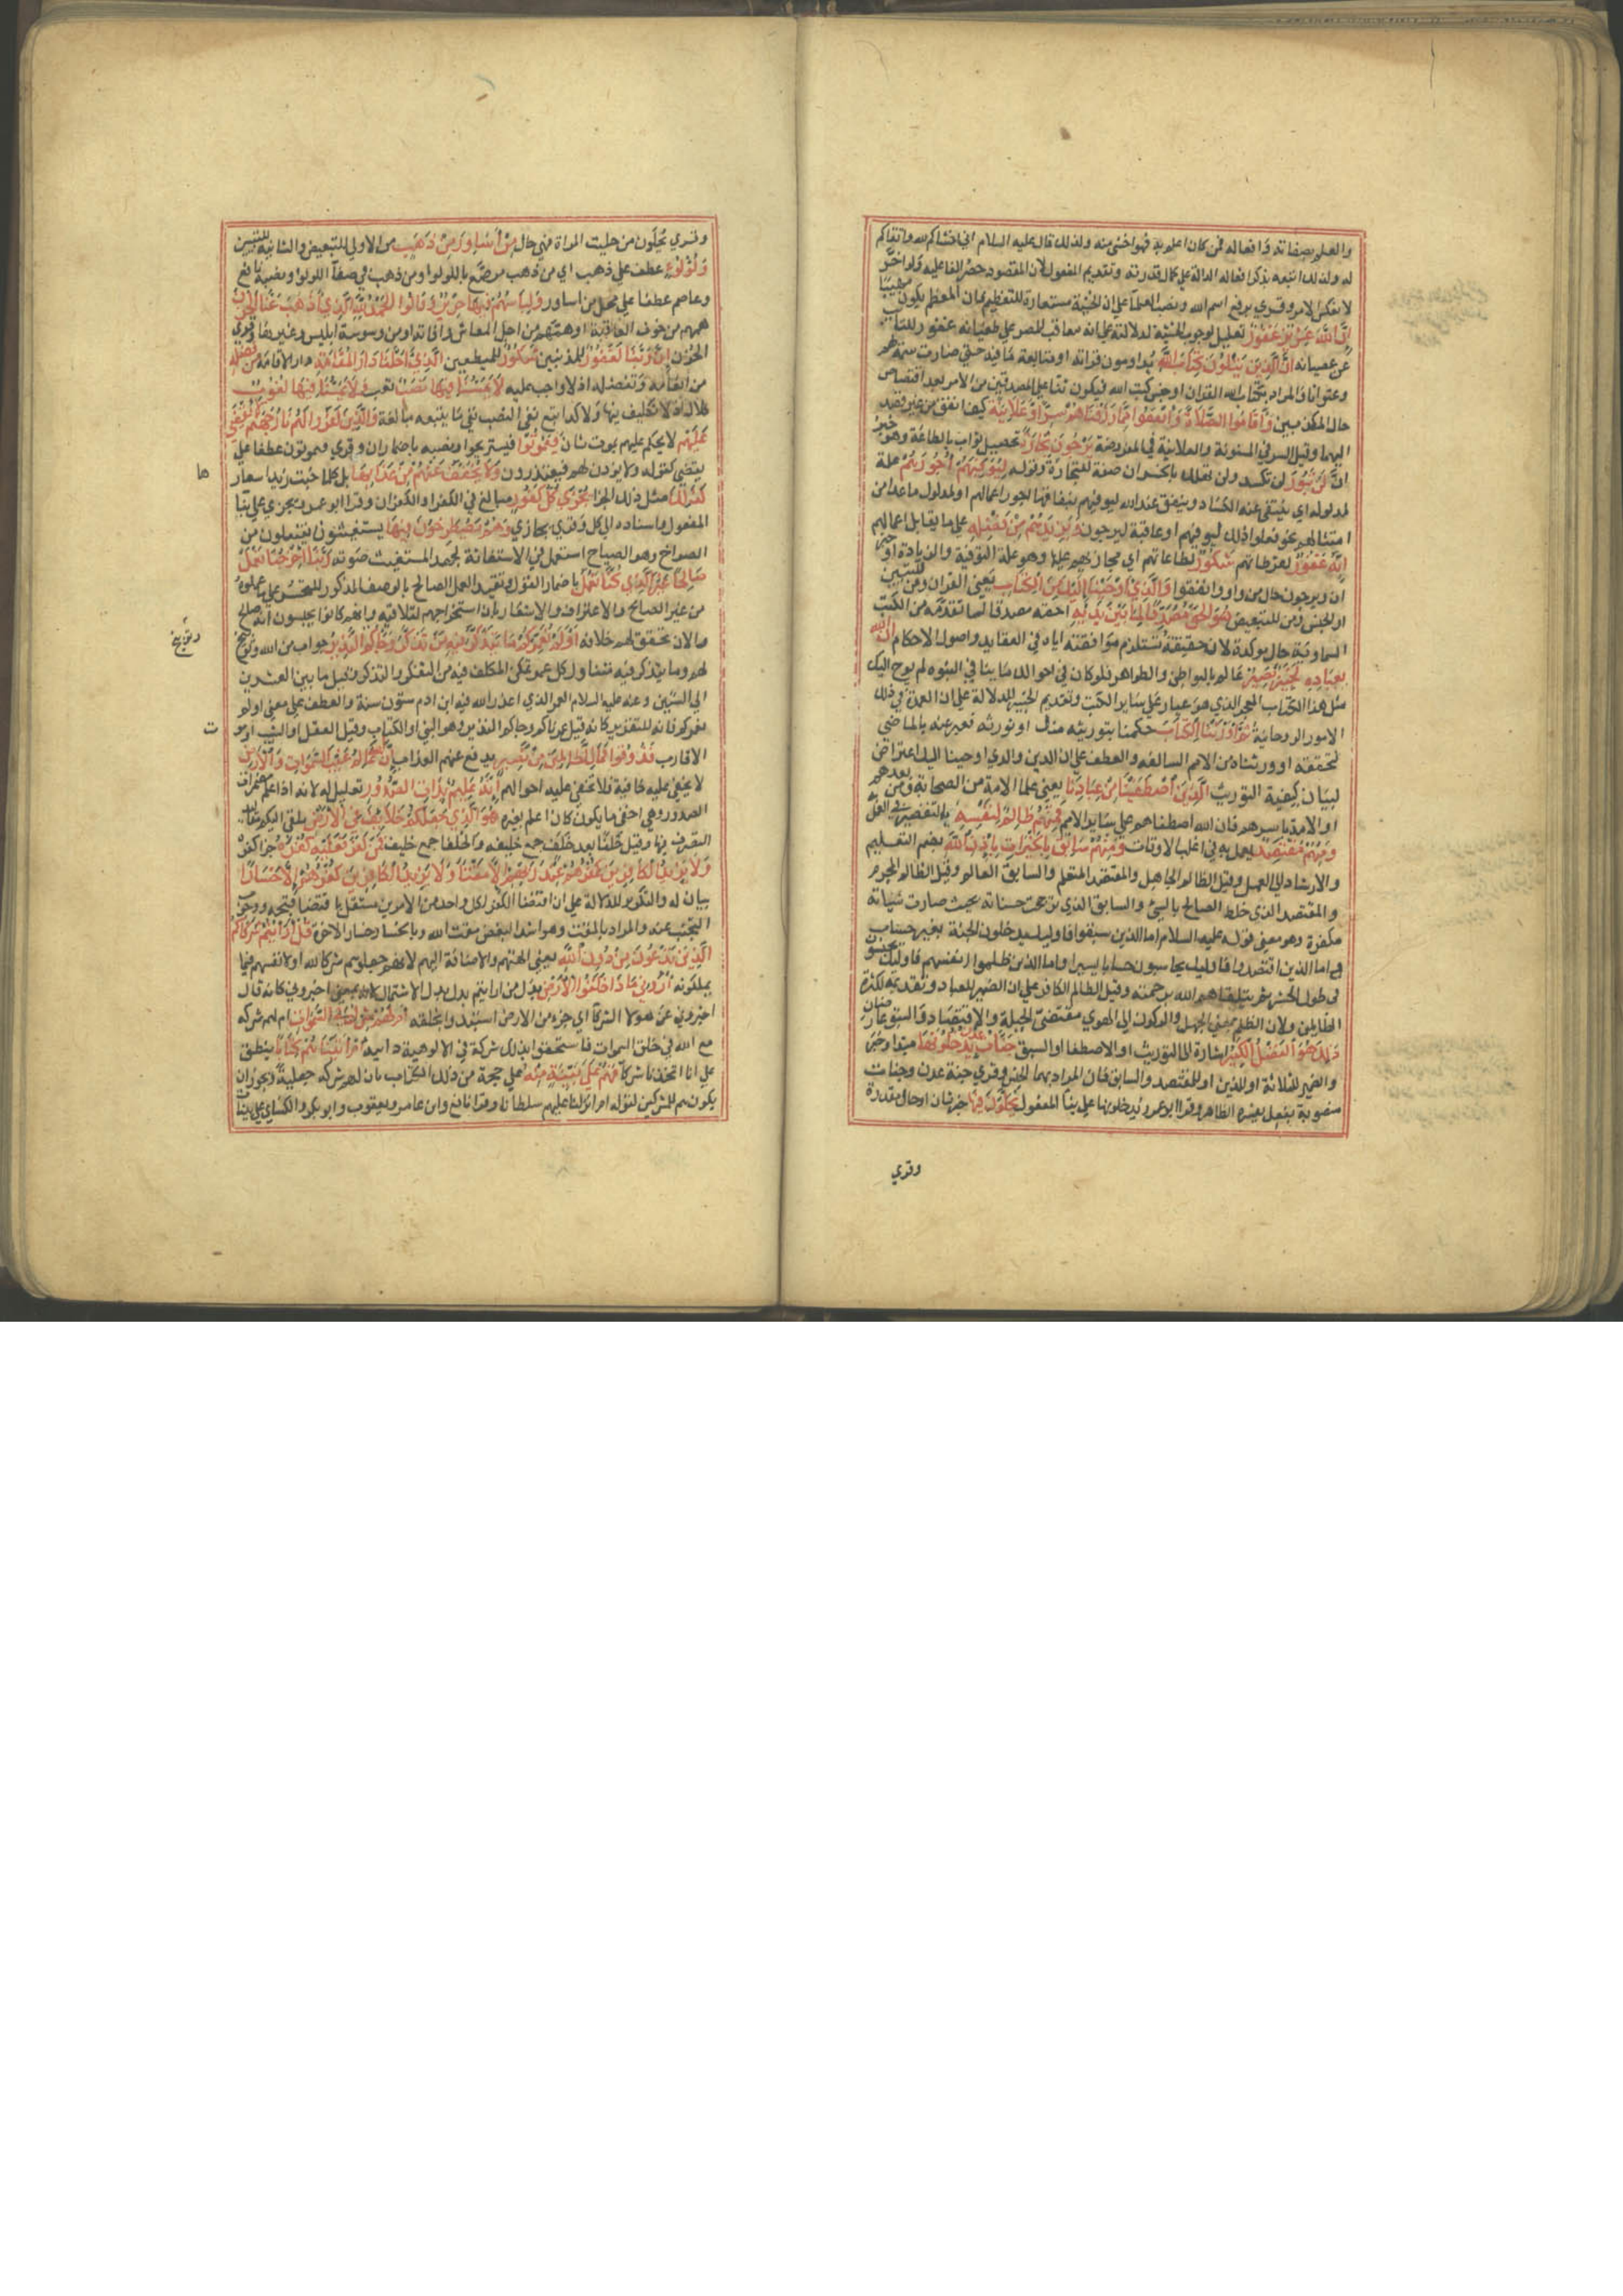 والعلم بصفاته وافعاله فمن كان اعلم به كان اخشى منه ولذلك قال عليه السلام اني اخشاكم لله واتقاكم
له ولذلك اتبعه بذكر افعاله الدالة على كمال قدرته وتقديم المفعول لان المقصود حصر الفاعلية ولو اخر
لانعكس الامر وقري برفع اسم الله ونصب العلماء على ان الخشية مستعارة للتعظيم فان المعظم يكون مهيبا
ان الله عزيز غفور تعليل لوجوب الخشية لدلالته على انه معاقب للمصر على طغيانه غفور للتائب
عن عصيانه ان الذين يتلون كتاب الله يداومون قراته او متابعة ما فيه حتى صارت سمة لهم
وعنوانا والمراد بكتاب الله القران او جنس كتب الله فيكون ثنا على المصدقين من الامم بعد اقتصاص
حال المكذبين واقاموا الصلاة وانفقوا مما رزقناهم سرا وعلانية كيف اتفق من غير قصد
اليهما وقيل السر في المسنونة والعلانية في المفروضة يرجون تجارة تحصيل ثواب بالطاعة وهو خبر
ان لن تبور لن تكسد ولن تهلك بالخسران صفة للتجارة وقوله ليوفيهم اجورهم علة
لمدلوله اي ينتفي عنه الكساد وينفق عند الله ليوفيهم بنفاقها اجور اعمالهم او لمدلول ما عد من
امتثالهم نحو فعلوا ذلك ليوفيهم او عاقبة ليرجون ويزيدهم من فضله على ما يقابل اعمالهم
انه غفور لفرطاتهم شكور لطاعاتهم اي مجازيهم عليها وهو علة التوفية والزيادة او خبر
ان ويرجون حال من واو وانفقوا والذي اوحينا اليك من الكتاب يعني القران ومن للتبيين
او الجنس ومن للتبعيض هو الحق مصدقا لما بين يديه احقه مصدقا لما تقدمه من الكتب
السماوية حال موكدة لان حقيقته تستلزم موافقته اياه في العقايد واصول الاحكام ان الله
بعباده لخبير بصير عالم بالبواطن والظواهر فلو كان في احوالك ما ينافي النبوه لم يوح اليك
مثل هذا الكتاب المعجز الذي هو عيار على ساير الكتب وتقديم الخبير للدلالة على ان العمدة في ذلك
الامور الروحانية ثم اورثنا الكتاب حكمنا بتوريثه منك او نورثه فعبر عنه بالماضي
لتحققه او ورثناه من الامم السالفه والعطف على ان الذين والذي اوحينا اليك اعتراض
لبيان كيفية التوريث الذين اصطفينا من عبادنا يعني علما الامة من الصحابة ومن بعدهم
او الامة باسرهم فان الله اصطفاهم على ساير الامم فمنهم ظالم لنفسه بالتقصير في العمل به
ومنهم مقتصد يعمل به في اغلب الاوقات ومنهم سابق بالخيرات باذن الله بضم التعليم
والارشاد الى العمل وقيل الظالم الجاهل والمقتصد المتعلم والسابق العالم وقيل الظالم المجرم
والمقتصد الذي خلط الصالح بالسيئ والسابق الذي ترجحت حسناته بحيث صارت سيئاته
مكفرة وهو معنى قوله عليه السلام اما الذين سبقوا فاوليك يدخلون الجنة بغير حساب
واما الذين اقتصدوا فاوليك يحاسبون حسابا يسيرا واما الذين ظلموا انفسهم فاوليك يحبسون
في طول المحشر ثم يتلقاهم الله برحمته وقيل الظالم الكافر على ان الضمير للعباد وتقديمه لكثرة
الظالمين ولان الظلم بمعنى الجهل والركون الى الهوى مقتضى الجبلة والاقتصاد والسبق عارضان
ذلك هو الفضل الكبير اشارة الى التوريث او الاصطفا او السبق جنات عدن يدخلونها مبتدا وخبر
والضمير للثلاثة او للذين او للمقتصد والسابق فان المراد بهما الجنس وقري جنة عدن وجنات
منصوبة بفعل يفسره الظاهر وقرا ابو عمرو يدخلونها على بنا المفعول يحلون فيها خبر ثان او حال مقدرة
وقري
وقري يحلون من حليت المراة فهي حال من اساور من ذهب من الاولى للتبعيض والثانية للتبيين
ولولو عطف على ذهب اي من ذهب مرصع باللولو او من ذهب في صفا اللولو ونصبه نافع
وعاصم عطفا على محل من اساور ولباسهم فيها حرير وقالوا الحمد لله الذي اذهب عنا الحزن
همهم من خوف العاقبة او همهم من اجل المعاش وافاته او من وسوسة ابليس وغيرها وقري
الحزن ان ربنا لغفور للمذنبين شكور للمطيعين الذي احلنا دار المقامة دار الاقامة من فضله
من انعامه وتفضله اذ لا واجب عليه لا يمسنا فيها نصب تعب ولا يمسنا فيها لغوب
كلال اذ لا تكليف فيها ولا كد اتبع نفي النصب نفي ما يتبعه مبالغة والذين كفروا لهم نار جهنم لا يقضى
عليهم لا يحكم عليهم بموت ثان فيموتوا فيستريحوا ونصبه باضمار ان وقري فيموتون عطفا على
يقضي كقوله ولا يوذن لهم فيعتذرون ولا يخفف عنهم من عذابها بل كلما خبت زيد اسعار
ها
كذلك مثل ذلك الجزا نجزي كل كفور مبالغ في الكفر او الكفران وقرا ابو عمرو يجزي على بنا
المفعول واسناده الى كل وقري يجازي وهم يصطرخون فيها يستغيثون يفتعلون من
الصراخ وهو الصياح استعمل في الاستغاثة لجهد المستغيث صوته ربنا اخرجنا نعمل
صالحا غير الذي كنا نعمل باضمار القول وتقييد العمل الصالح بالوصف المذكور للتحسر على ما عملوه
من غير الصالح والاعتراف به والاشعار بان استخراجهم لتلافيه وانهم كانوا يحسبون انه صالح
والان تحقق لهم خلافه اولم نعمركم ما يتذكر فيه من تذكر وجاكم النذير جواب من الله وتوبيخ
وتوبيخ
لهم وما يتذكر فيه متناول كل عمر تمكن المكلف فيه من التفكر والتذكر وقيل ما بين العشرين
الى الستين وعنه عليه السلام العمر الذي اعذر الله فيه ابن ادم ستون سنة والعطف على معنى اولم
نعمركم فانه للتقرير كانه قيل عمرناكم وجاكم النذير وهو النبي او الكتاب وقيل العقل او الشيب او مو
ت
الاقارب فذوقوا فما للظالمين من نصير يدفع عنهم العذاب ان الله عالم غيب السموات والارض
لا يخفى عليه خافية فلا تخفى عليه احوالهم انه عليم بذات الصدور تعليل له لانه اذا علم مضمرات
الصدور وهي اخفى ما يكون كان اعلم بغيره هو الذي جعلكم خلائف في الارض يلقي اليكم مقاليد
التصرف فيها وقيل خلفا بعد خلف جمع خليفه والخلفا جمع خليف فمن كفر فعليه كفره جزا كفره
ولا يزيد الكافرين كفرهم عند ربهم الا مقتا ولا يزيد الكافرين كفرهم الا خسارا
بيان له والتكرير للدلالة على ان اقتضا الكفر لكل واحد من الامرين مستقل باقتضا قبحه ووجوب
التجنب عنه والمراد بالمقت وهو اشد البغض مقت الله وبالخسار خسار الاخرة قل ارايتم شركاكم
الذين تدعون من دون الله يعني الهتهم والاضافة اليهم لانهم جعلوهم شركا لله او لانفسهم فيما
يملكونه اروني ماذا خلقوا من الارض بدل من ارايتم بدل الاشتمال لانه بمعنى اخبروني كانه قال
اخبروني عن هولا الشركا اي جزء من الارض استبدوا بخلقه ام لهم شرك في السموات ام لهم شركه
مع الله في خلق السموات فاستحقوا بذلك شركة في الالوهية ذاتية ام اتيناهم كتابا ينطق
على انا اتخذنا شركا فهم على بينة منه على حجة من ذلك الكتاب بان لهم شركه جعلية ويجوز ان
يكون هم للمشركين لقوله ام انزلنا عليهم سلطانا وقرا نافع وابن عامر ويعقوب وابو بكر والكسائي على بينات